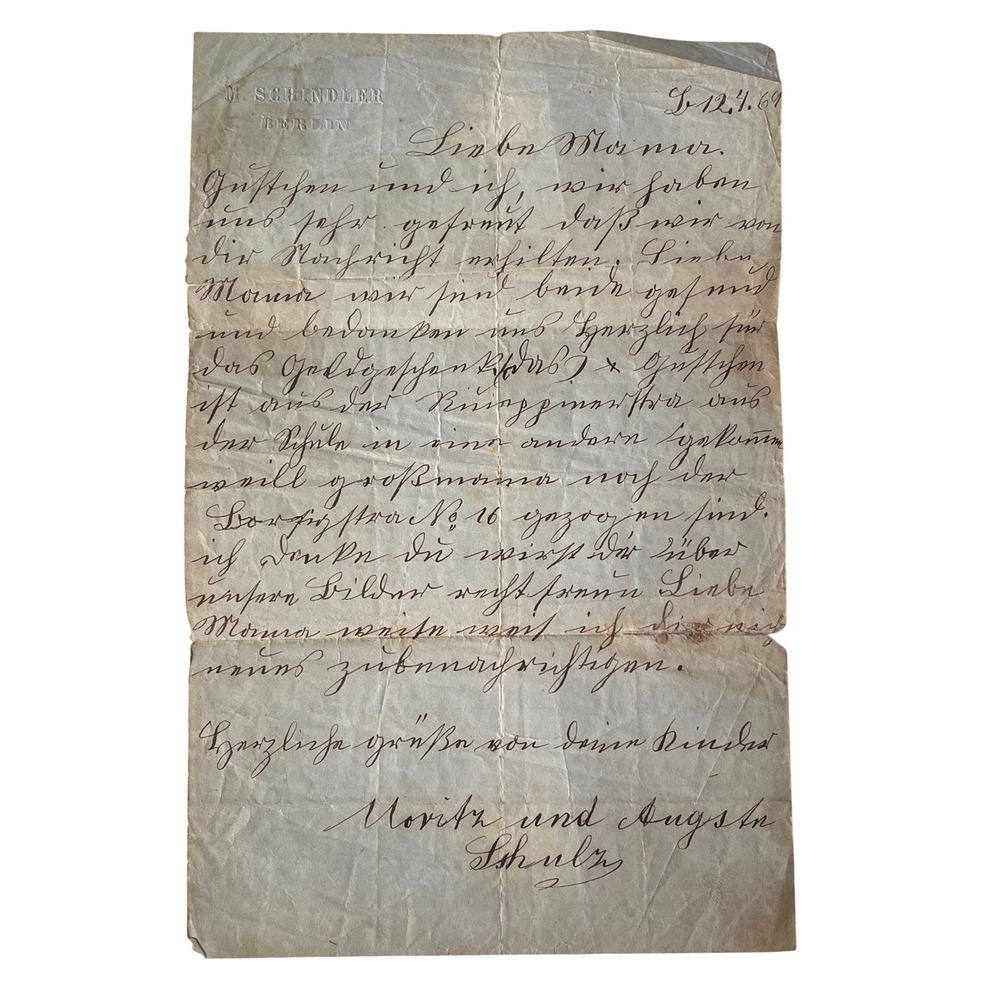 M. SCHINDLER
BERLIN
B 12.4.69
Liebe Mama.
Gustchen und ich, wir haben
uns sehr gefreut daß wir von
dir Nachricht erhilten. Liebe
Mama wir sind beide gesund
und bedanken uns Herzlich für
das Geldgeschenk (das) x Gustchen
ist aus der Rueppinerstra aus
der Schule in eine andere gekommen
weill großmama noch der
Borsigstra No 16 gezogen sind.
ich denke du wirst dir über
unsere Bilder recht freun Liebe
Mama weite weis ich dir
neues zubenachrichtigen.
Herzliche grüße von deine Kinder
Moritz und Augste
Schulz